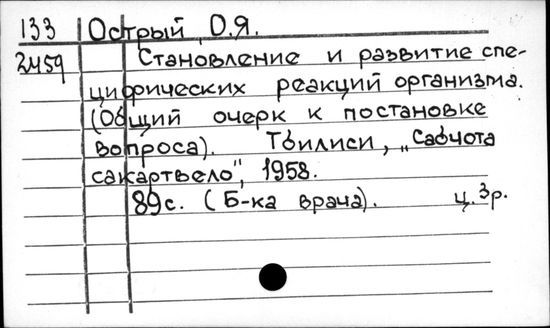 133 Острый, О.Я.
2459 Становление и развитие спе-
цифических реакций организма.
(Общий очерк к постановке
вопроса). Тбилиси, „Сабчота
сакартвело", 1958.
89с. (Б-ка врача). ц. 3р.